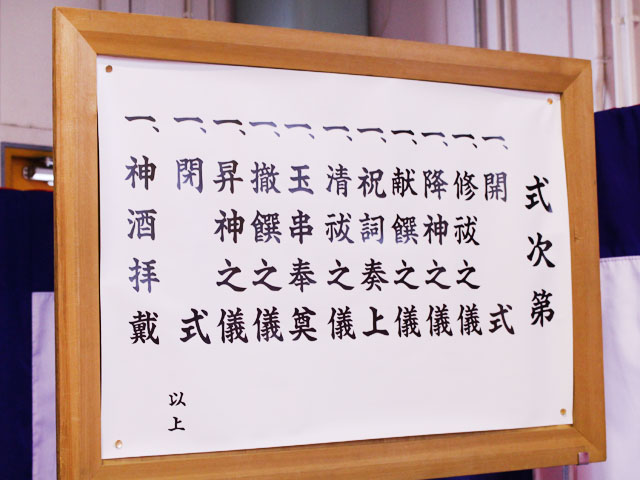 式次第
一、開式
一、修祓之儀
一、降神之儀
一、献饌之儀
一、祝詞奏上
一、清祓之儀
一、玉串奉奠
一、撤饌之儀
一、昇神之儀
一、閉式
一、神酒拝戴
以上